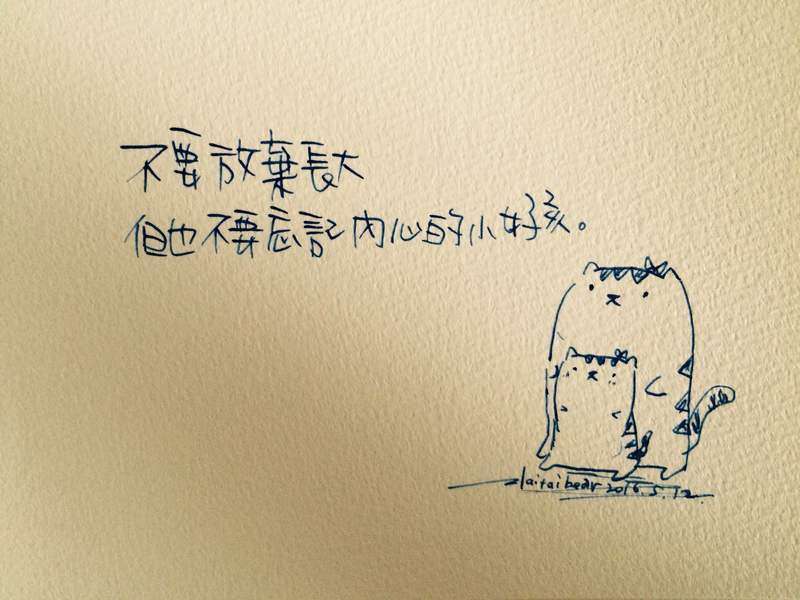 不要放棄長大
但也不要忘記內心的小女孩。
laitaibear 2016.5.12